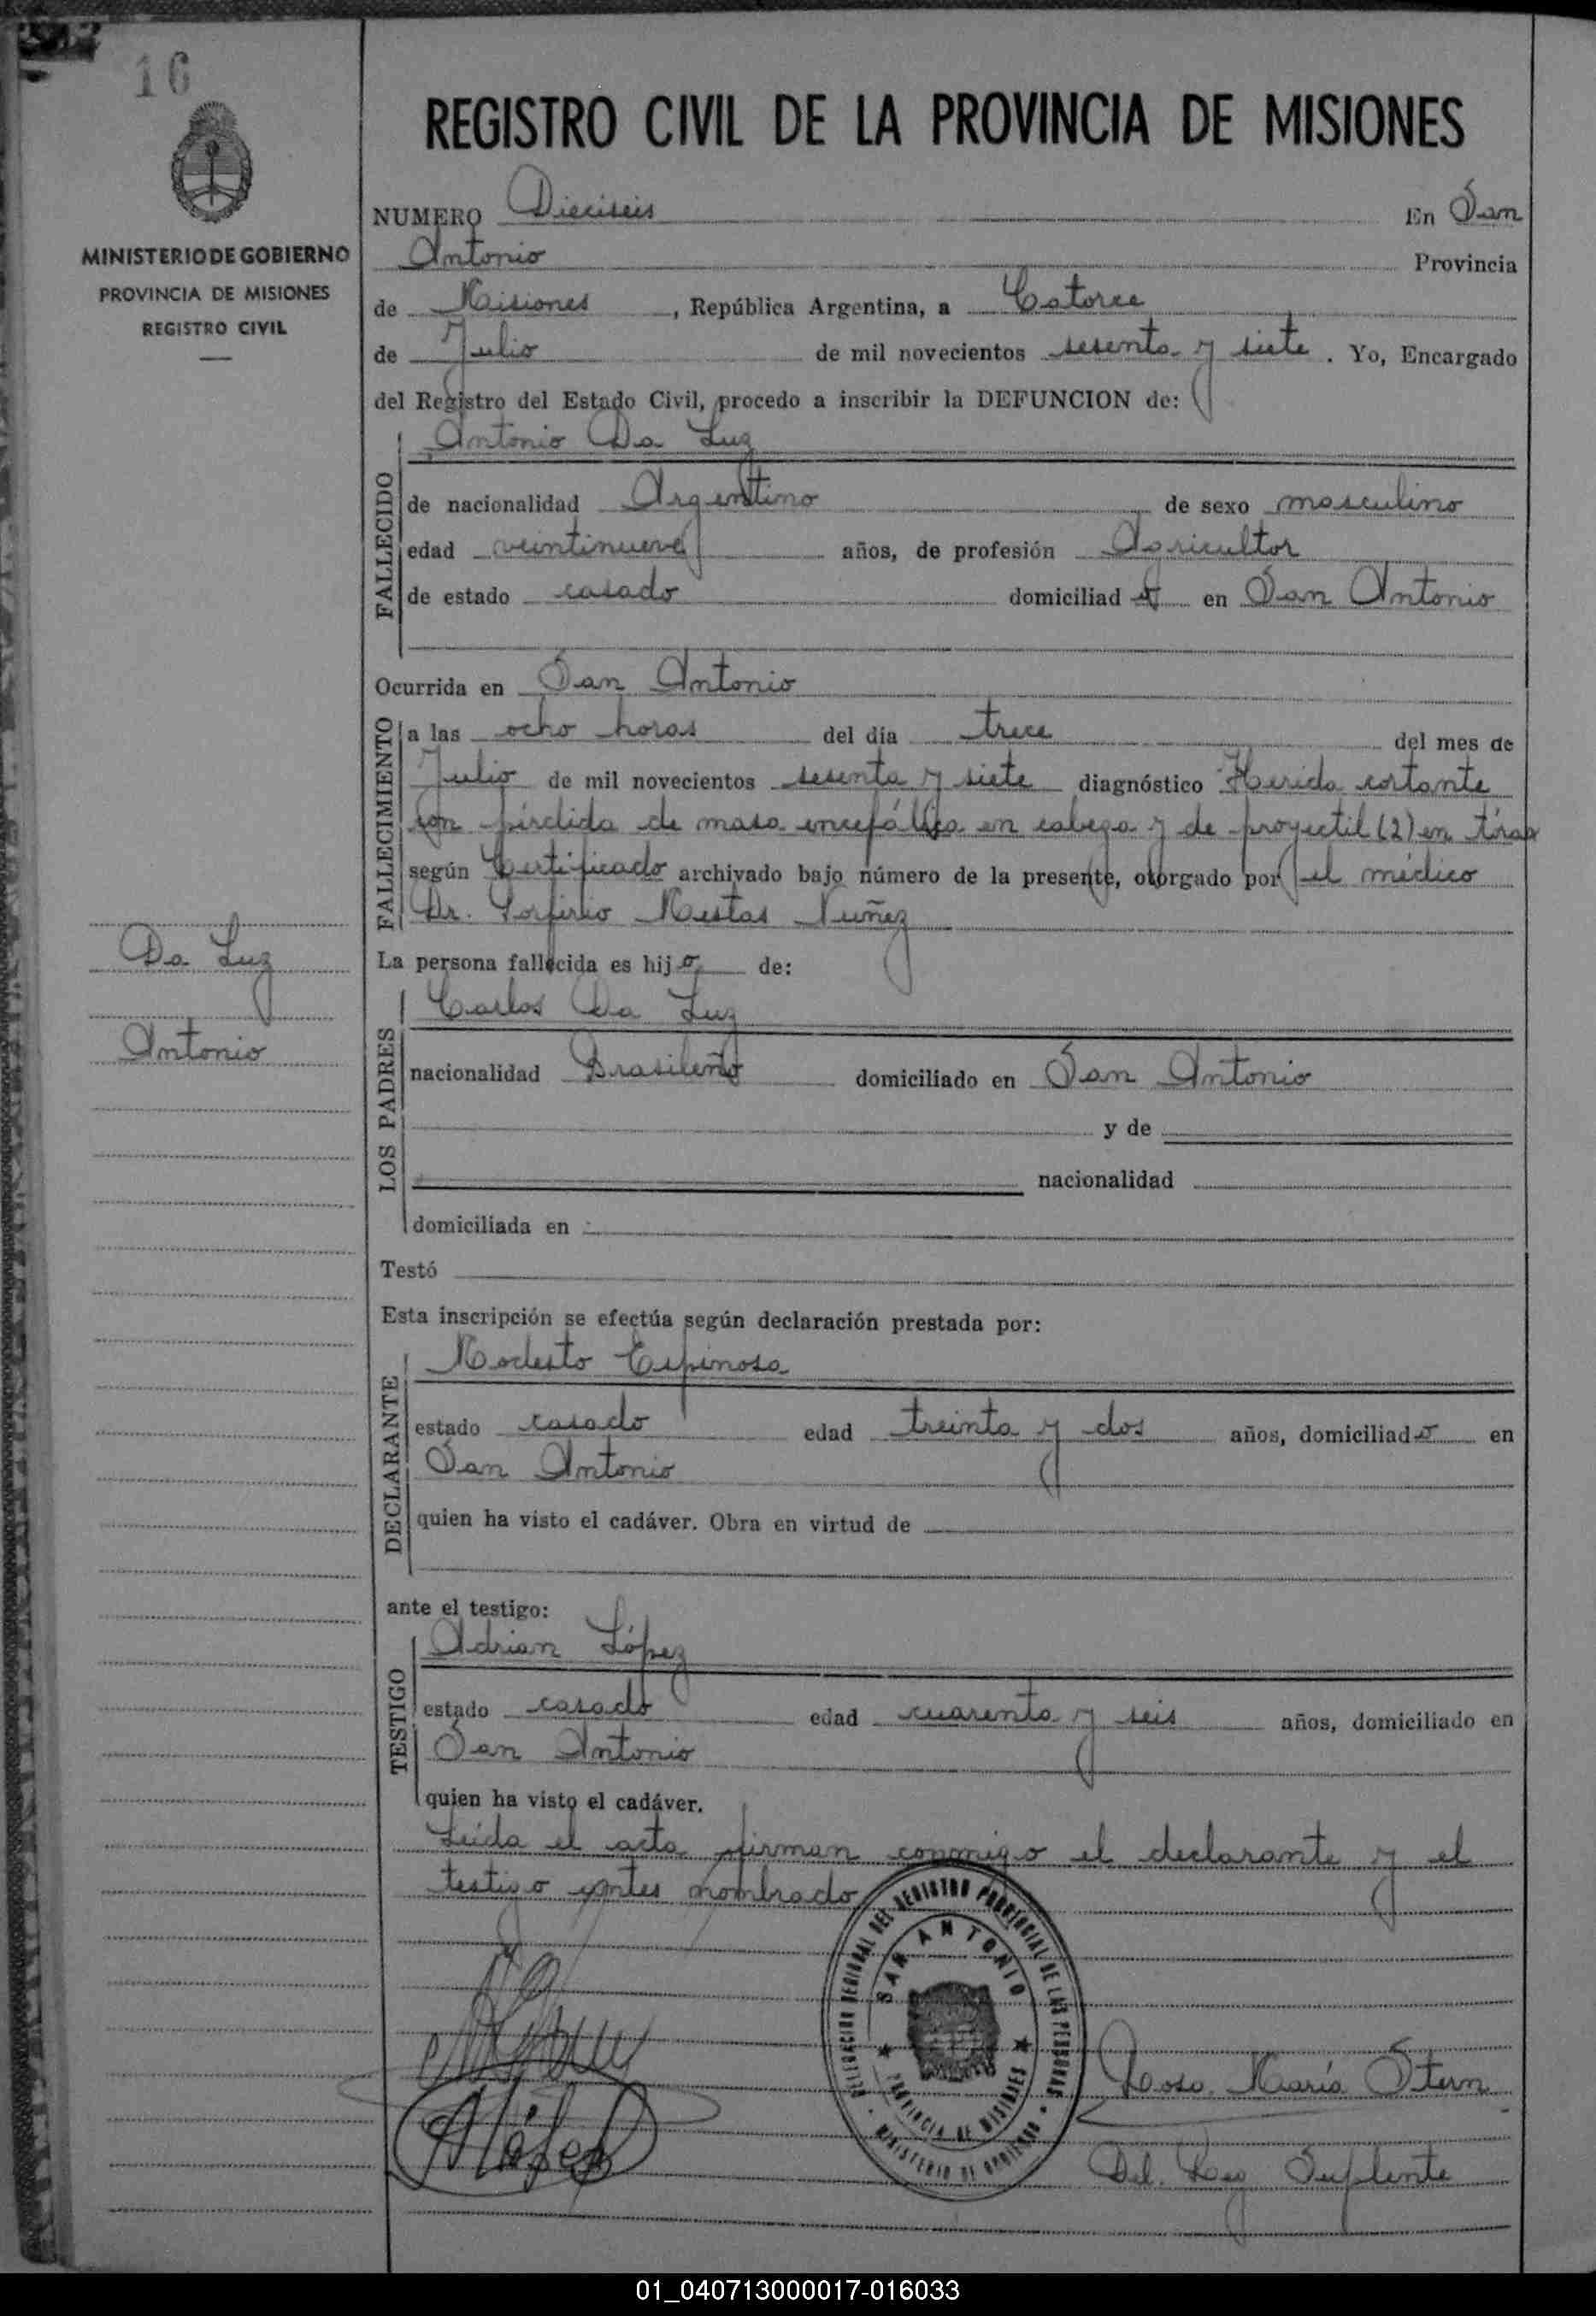 16
MINISTERIO DE GOBIERNO
PROVINCIA DE MISIONES
REGISTRO CIVIL
REGISTRO CIVIL DE LA PROVINCIA DE MISIONES
NUMERO Dieciseis En San
Antonio Provincia
de Misiones, República Argentina, a Catorce
de Julio de mil novecientos sesenta y siete. Yo, Encargado
del Registro del Estado Civil, procedo a inscribir la DEFUNCION de:
Antonio Da Luz
FALLECIDO
de nacionalidad Argentino de sexo masculino
edad veintinueve años, de profesión Agricultor
de estado casado domiciliado en San Antonio
Ocurrida en San Antonio
FALLECIMIENTO
a las ocho horas del día trece del mes de
Julio de mil novecientos sesenta y siete diagnóstico Herida cortante
con pérdida de masa encefálica en cabeza y de proyectil (2) en tórax
según Certificado archivado bajo número de la presente, otorgado por el médico
Dr. Porfirio Mestas Nuñez
Da Luz
Antonio
La persona fallecida es hijo de:
LOS PADRES
Carlos Da Luz
nacionalidad Brasileño domiciliado en San Antonio
y de
nacionalidad
domiciliada en
Testó
Esta inscripción se efectúa según declaración prestada por:
DECLARANTE
Modesto Espinosa
estado casado edad treinta y dos años, domiciliado en
San Antonio
quien ha visto el cadáver. Obra en virtud de
ante el testigo:
TESTIGO
Adrian López
estado casado edad cuarenta y seis años, domiciliado en
San Antonio
quien ha visto el cadáver.
Leída el acta firman conmigo el declarante y el
testigo antes nombrado
DELEGACION REGIONAL DEL REGISTRO PROVINCIAL DE LAS PERSONAS
SAN ANTONIO
PROVINCIA DE MISIONES
MINISTERIO DE GOBIERNO
Rosa María Stern
Del. Reg Suplente
ALópez
01_040713000017-016033